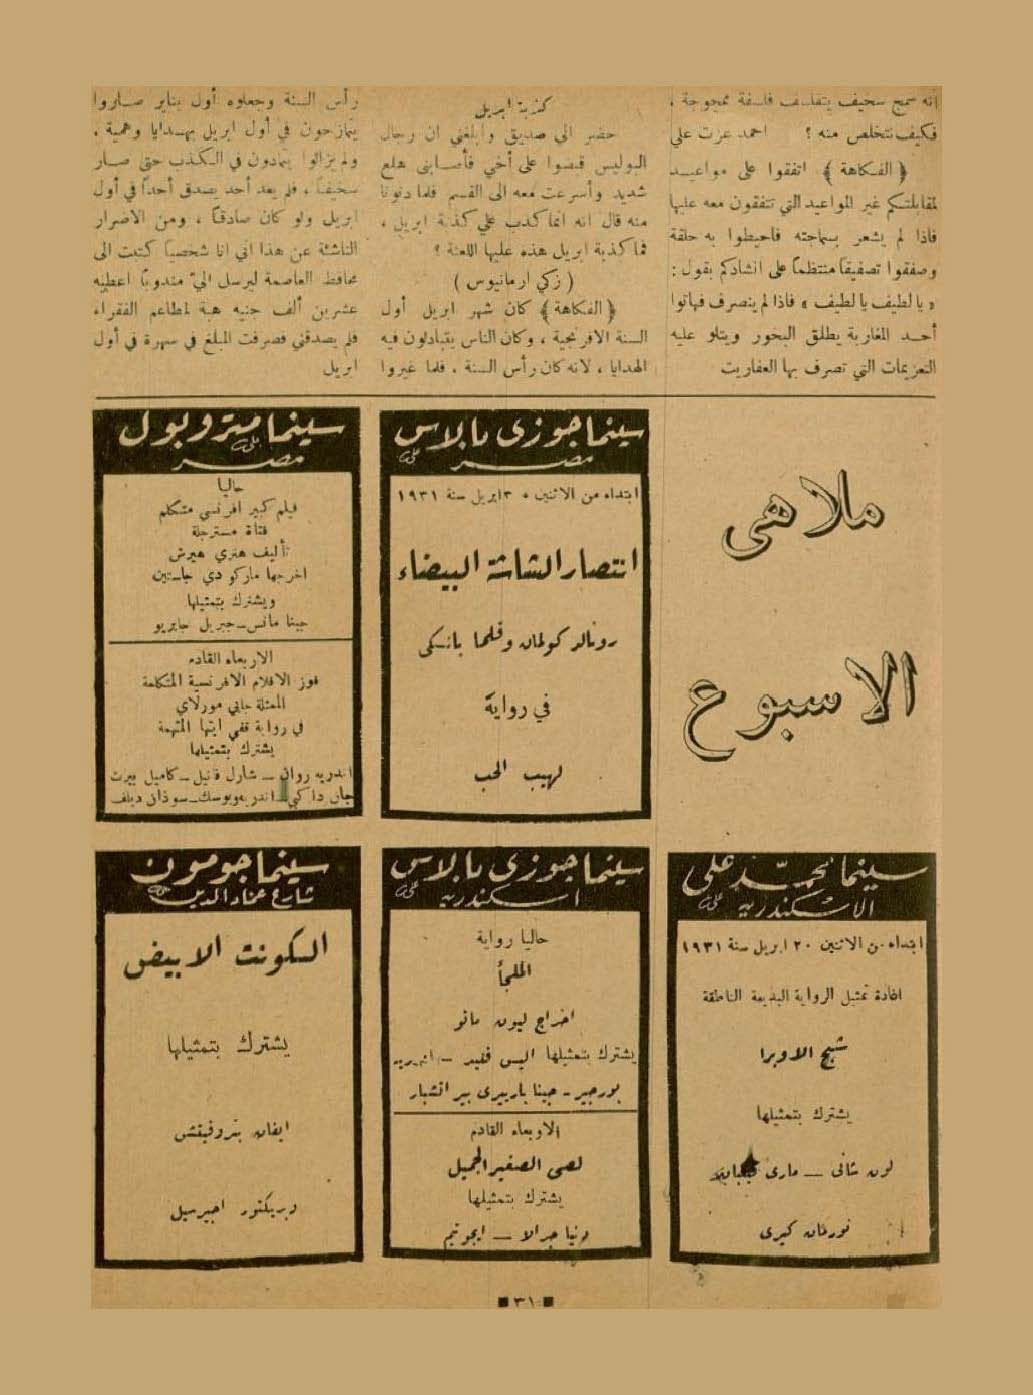 انه سمج سخيف يتفلسف فلسفة ممجوجة ،
فكيف نتخلص منه ؟ احمد عزت علي
﴿ الفكاهة ﴾ اتفقوا على مواعيد
لمقابلتكم غير المواعيد التي تتفقون معه عليها
فاذا لم يشعر بسماجته فاحيطوا به حلقة
وصفقوا تصفيقاً منتظماً على انشادكم بقول :
« يا لطيف يا لطيف » فاذا لم ينصرف فهاتوا
أحد المغاربة يطلق البخور ويتلو عليه
التعزيمات التي تصرف بها العفاريت
كذبة ابريل
حضر الي صديق وابلغني ان رجال
البوليس قبضوا على أخي فأصابني هلع
شديد وأسرعت معه الى القسم فلما دنونا
منه قال انه انما كذب علي كذبة ابريل ،
فما كذبة ابريل هذه عليها اللعنة ؟
( زكي ارمانيوس )
﴿ الفكاهة ﴾ كان شهر ابريل أول
السنة الافرنجية ، وكان الناس يتبادلون فيه
الهدايا ، لانه كان رأس السنة ، فلما غيروا
رأس السنة وجعلوه أول يناير صاروا
يمازحون في أول ابريل بهدايا وهمية ،
ولم يزالوا يتمادون في الكذب حتى صار
سخيفاً ، فلم يعد أحد يصدق أحداً في أول
ابريل ولو كان صادقاً ، ومن الاضرار
الناشئة عن هذا اني انا شخصياً كتبت الى
محافظ العاصمة ليرسل اليّ مندوباً اعطيه
عشرين ألف جنيه هبة لمطاعم الفقراء
فلم يصدقني فصرفت المبلغ في سهرة في أول
ابريل
ملاهى
الاسبوع
سينما جوزى بالاس
مصر
ابتداء من الاثنين ٢٠ ابريل سنة ١٩٣١
انتصار الشاشة البيضاء
رونالد كولمان وفلما بانكى
في رواية
لهيب الحب
سينما متروبول
مصر
حاليا
فيلم كبير افرنسي متكلم
فتاة مسترجلة
تأليف هنري هيرش
اخرجها ماركو دي جاستين
ويشترك بتمثيلها
جينا مانس – جبريل جابريو
الاربعاء القادم
فوز الافلام الافرنسية المتكلمة
الممثلة جابي مورلاي
في رواية ققي ايتها المتهمة
يشترك بتمثيلها
اندريه روان – شارل فانيل – كاميل بيرت
جان داكس – اندريه دوبوسك – سوذان ديلف
سينما محمد على
الاسكندرية
ابتداء من الاثنين ٢٠ ابريل سنة ١٩٣١
اعادة تمثيل الرواية البديعة الناطقة
شبح الاوبرا
يشترك بتمثيلها
لون شانى – مارى
نورمان كيرى
سينما جوزى بالاس
اسكندرية
حاليا رواية
الملجأ
اخراج ليون ماتو
يشترك بتمثيلها اليس فيلد – اندريه
بورجير – جينا باربيرى بير اتشبار
الاربعاء القادم
لصى الصغير الجميل
يشترك بتمثيلها
دنيا جرالا – ايجوتيم
سينما جومون
شارع عماد الدين
الكونت الابيض
يشترك بتمثيلها
ايفان بتروفيتش
ديريكتور اجيرسيل
٣١